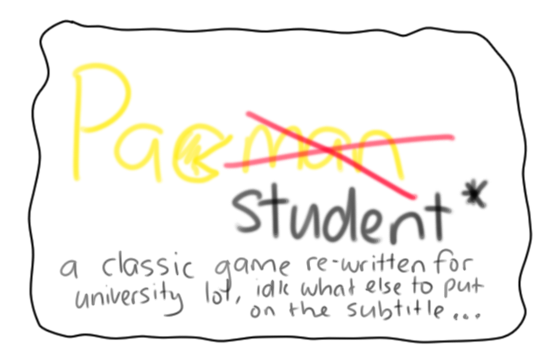 Pacman
student*
a classic game re-written for
university lot, idk what else to put
on the subtitle...